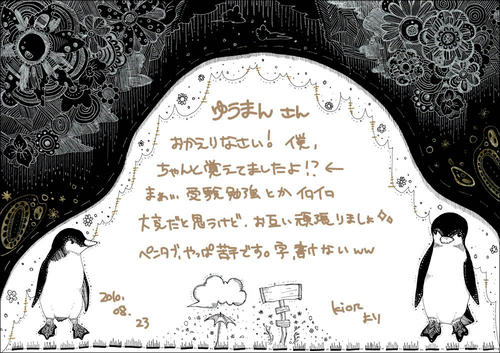 ゆうまん さん
おかえりなさい! 僕、
ちゃんと覚えてましたよ!? ←
まぁ、受験勉強とかイロイロ
大変だと思うけど、お互い頑張りましょ
ペンタブ、やっぱ苦手です。字、書けないww
2010.
08.
23
kionより